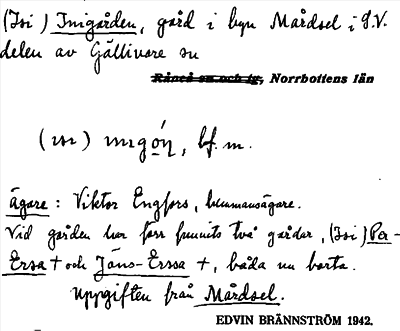 (Isi) Inigården, gård i byn Mårdsel i S.V.
delen av Gällivare sn
Råneå sn och tg, Norrbottens län
bf. m.
Ägare: Viktor Engfors, hemmansägare.
Vid gården har förr funnits två gårdar, (Isi) Per-
Ersa + och Jäns-Erssa +, båda nu borta.
Uppgiften från Mårdsel.
EDVIN BRÄNNSTRÖM 1942.